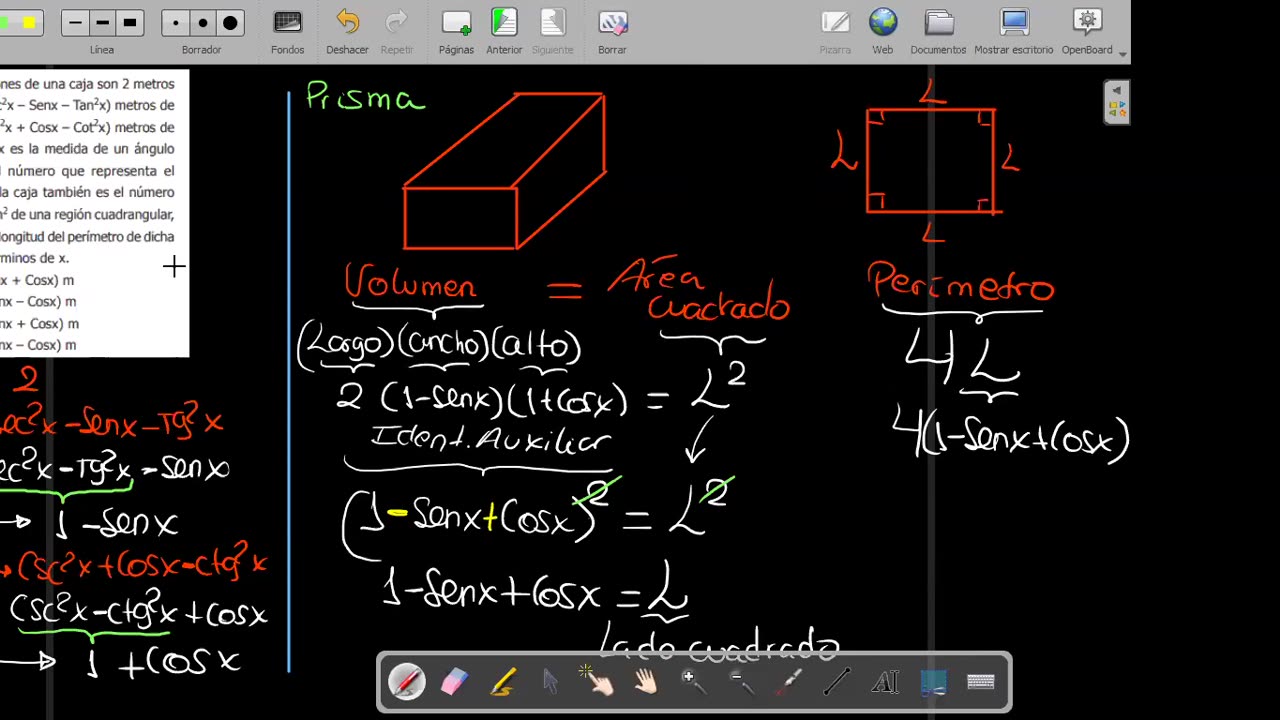 Línea
Borrador
Fondos
Deshacer
Repetir
Páginas
Anterior
Siguiente
Borrar
Pizarra
Web
Documentos
Mostrar escritorio
OpenBoard
nes de una caja son 2 metros
c²x – Senx – Tan²x) metros de
²x + Cosx – Cot²x) metros de
x es la medida de un ángulo
l número que representa el
la caja también es el número
n² de una región cuadrangular,
longitud del perímetro de dicha
rminos de x.
x + Cosx) m
nx – Cosx) m
nx + Cosx) m
nx – Cosx) m
2
sec²x -senx -Tg²x
ec²x -Tg²x -senx
1 -senx
Csc²x +Cosx -ctg²x
Csc²x -ctg²x +cosx
1 +Cosx
Prisma
Volumen = Área cuadrado
(Largo)(ancho)(alto)
2 (1-senx)(1+cosx) = L²
Ident. Auxiliar
(1-senx+cosx)² = L²
1-senx+cosx = L
Lado cuadrado
L
L
L
L
Perímetro
4L
4(1-senx+cosx)